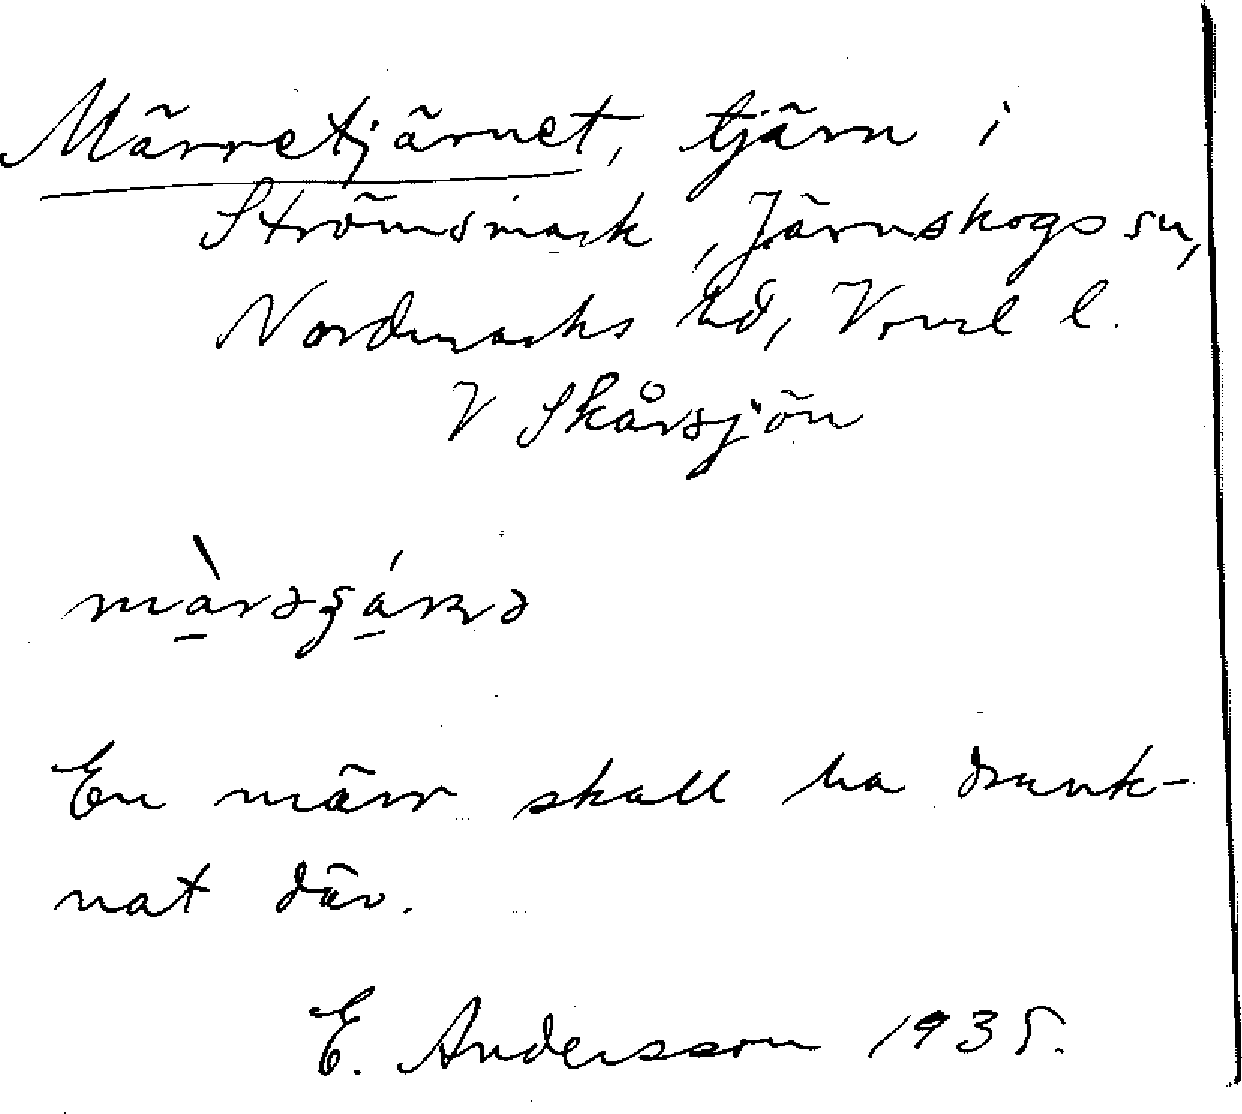 Märretjärnet, tjärn i
Strömsmark, Järnskogs sn,
Nordmarks hd, Vrml l.
V Skårsjön
En märr skall ha drunk-
nat där.
E. Andersson 1935.